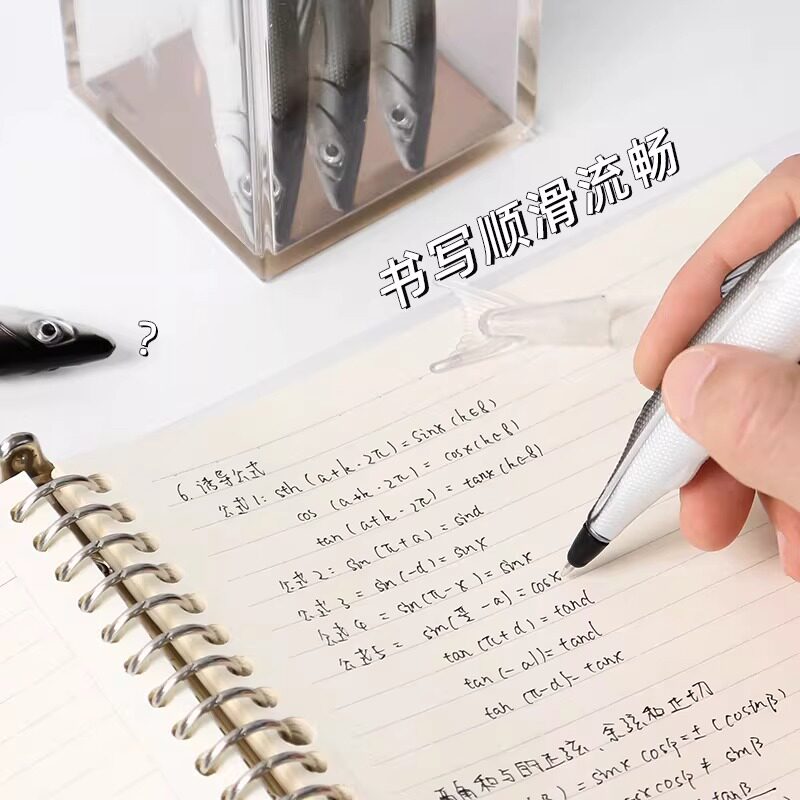 书写顺滑流畅
?
6. 诱导公式
公式1: sth (a+k·2π)=sinx(k∈8)
cos (a+k·2π) = cosx(k∈8)
tan (a+k·2π) = tanx(k∈8)
公式2: sin (π+a) = sind
公式3 = sin(-d) = sinx
公式4 = sin(π-x) = sinx
公式5 = sin(π/2-a) = cosx
tan (π+d)=tand
tan(-a))=tand
tan (π-d)= tanx
两角和与的正弦、余弦和正切
) = sinx cosβ=±(cosinβ)
cosβ ≠ sinβ